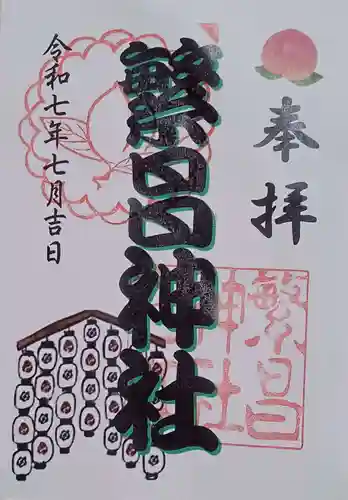 奉拝
繁昌神社
繁昌
神社
令和七年七月吉日